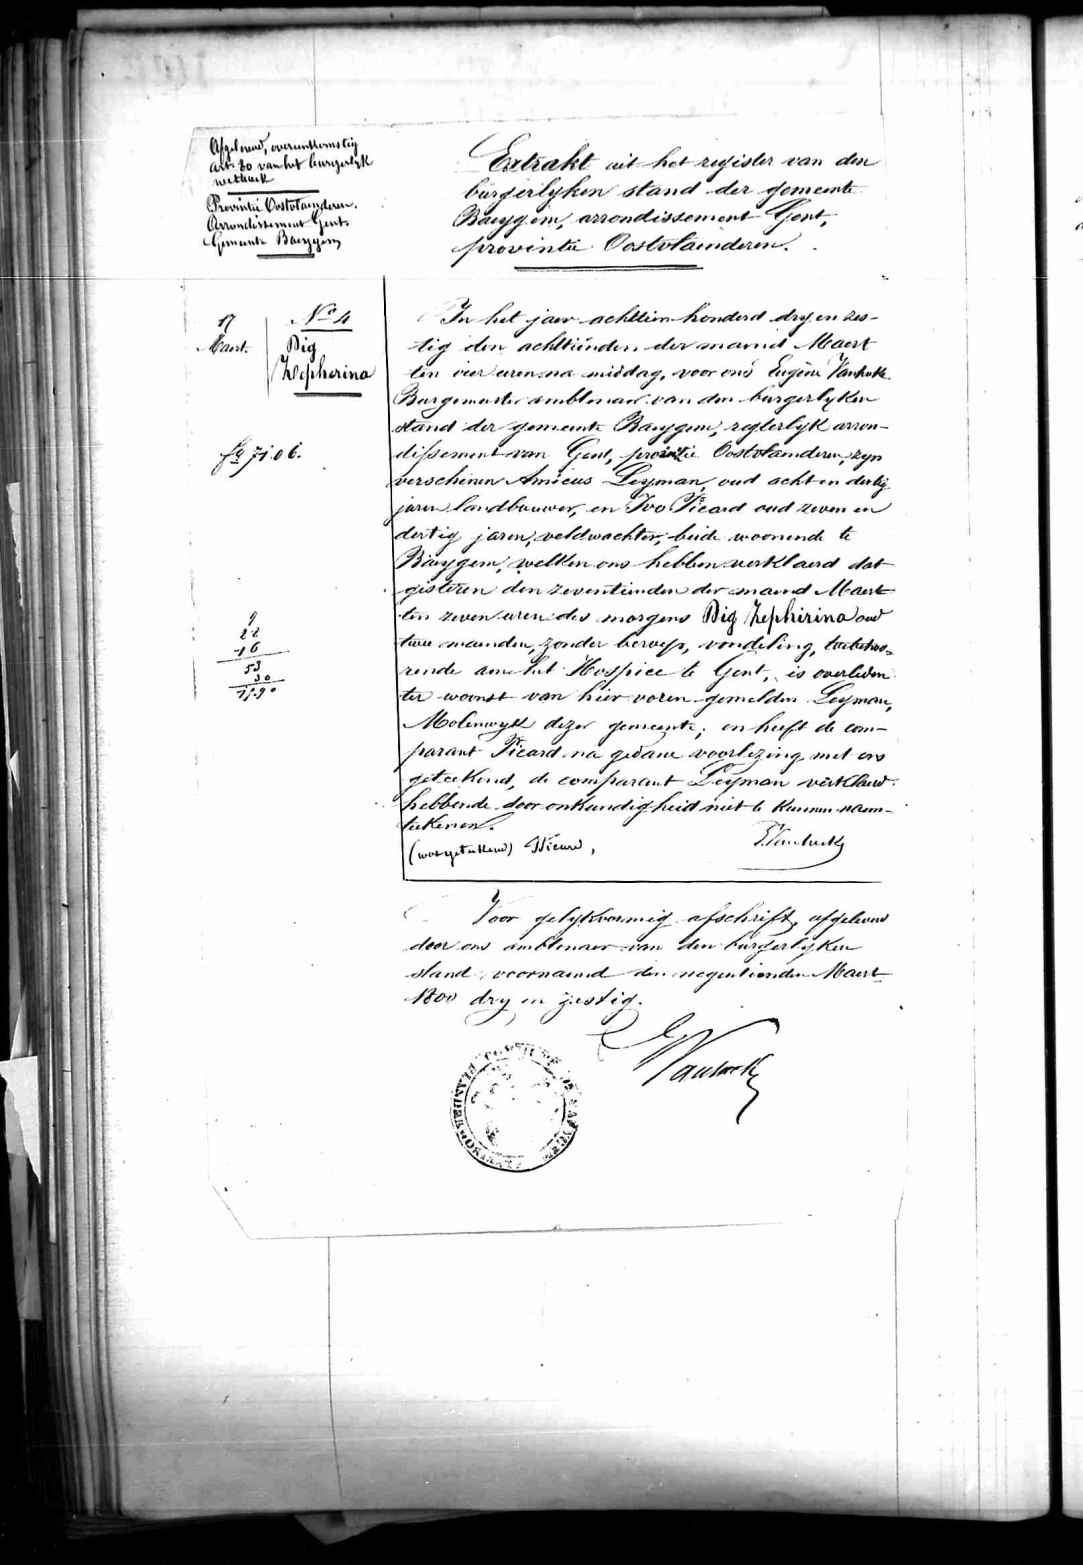 Afgeleverd, overeenkomstig
art. 80 van het burgerlyk
wetboek
Provintie Oostvlaenderen.
Arrondissement Gent.
Gemeente Baeygem
Extrakt uit het register van den
burgerlyken stand der gemeente
Baeygem, arrondissement Gent,
provintie Oostvlaenderen.
17
Maert.
No 4
Big
Zepherina
fo 71.06.
9
22
16
53
30
In het jaer achttien honderd dry en zes-
tig den achttienden der maend Maert
ten vier uren na middag, voor ons Eugène
Burgemeester ambtenaer van den burgerlyken
stand der gemeente Baeygem, regterlyk arron-
dissement van Gent, provintie Oostvlaenderen, zyn
verschenen Amicus Leyman, oud acht en dertig
jaren landbouwer, en Ivo Picard oud zeven en
dertig jaren, veldwachter, beide woonende te
Baeygem, welken ons hebben verklaerd dat
gisteren den zeventienden der maend Maert
ten zeven uren des morgens Big Zephirina oud
twee maenden, zonder beroep, vondeling, toebehoo-
rende aen het Hospice te Gent, is overleden
ter woonst van hier voren gemelden Leyman,
Molenwyk dezer gemeente; en heeft de com-
parant Picard na gedane voorlezing met ons
geteekend, de comparant Leyman verklaerd
hebbende door onkundigheid niet te kunnen naem-
teekenen.
(was geteekend) Picard,
Voor gelykvormig afschrift, afgeleverd
door ons ambtenaer van den burgerlyken
stand voornaemd den negentienden Maert
1800 dry en zestig.